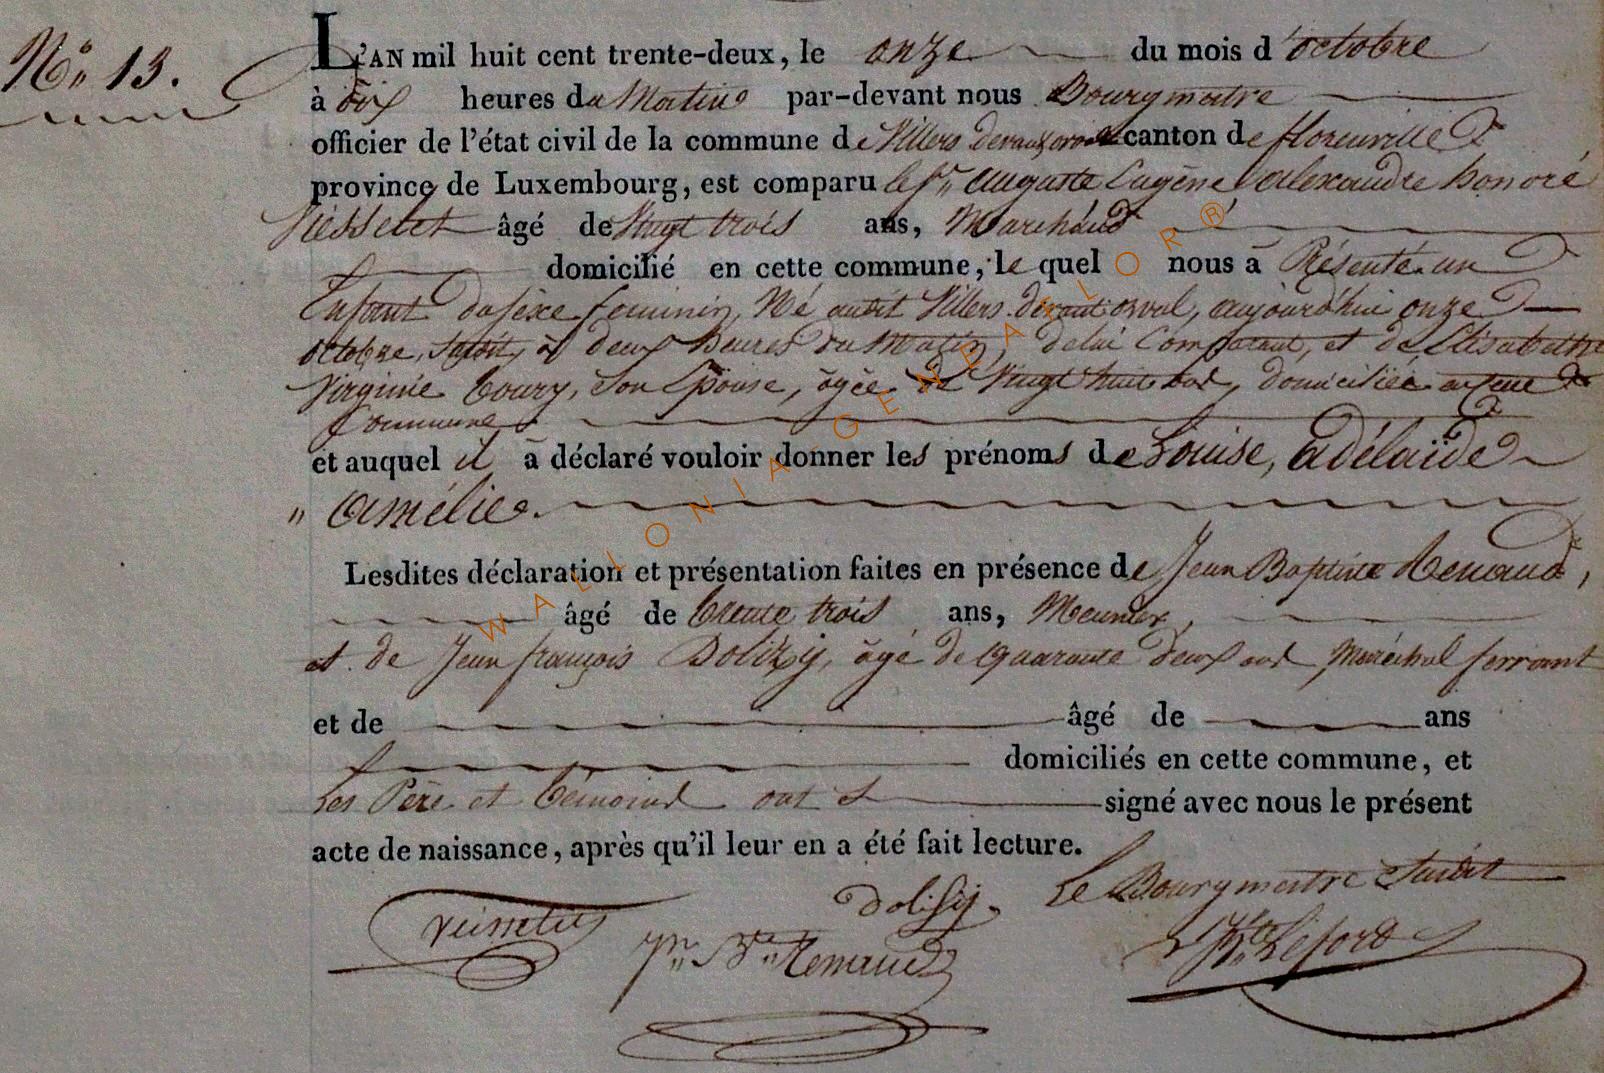 N.° 13.
L'AN mil huit cent trente-deux, le onze du mois d'octobre
à dix heures du Matin par-devant nous Bourgmestre
officier de l'état civil de la commune de Villers devant orval canton de florenville
province de Luxembourg, est comparu le Sr. auguste Eugène alexandre honoré
âgé de Vingt trois ans, Marchand
domicilié en cette commune, le quel nous à Présenté un
Enfant du sexe feminin, Né audit Villers devant orval, aujourd'hui onze
octobre, susdit, à deux heures du Matin, de lui Comparant, et de Elisabethe
Virginie Toury, son Epouse, âgée de Vingt huit ans, domiciliée en cette
Commune
et auquel il à déclaré vouloir donner les prénoms de Louise, adélaïde
" amélie.
Lesdites déclaration et présentation faites en présence de Jean Baptiste Renaud,
âgé de trente trois ans, Meunier,
et de Jean françois Dolizy, âgé de quarante deux ans, Maréchal ferrant
et de âgé de ans
domiciliés en cette commune, et
Les Père et témoins ont signé avec nous le présent
acte de naissance, après qu'il leur en a été fait lecture.
Le Bourgmestre susdit
dolisy
Jn. Bte. Renaud
WALLONIA-GENEALOR®